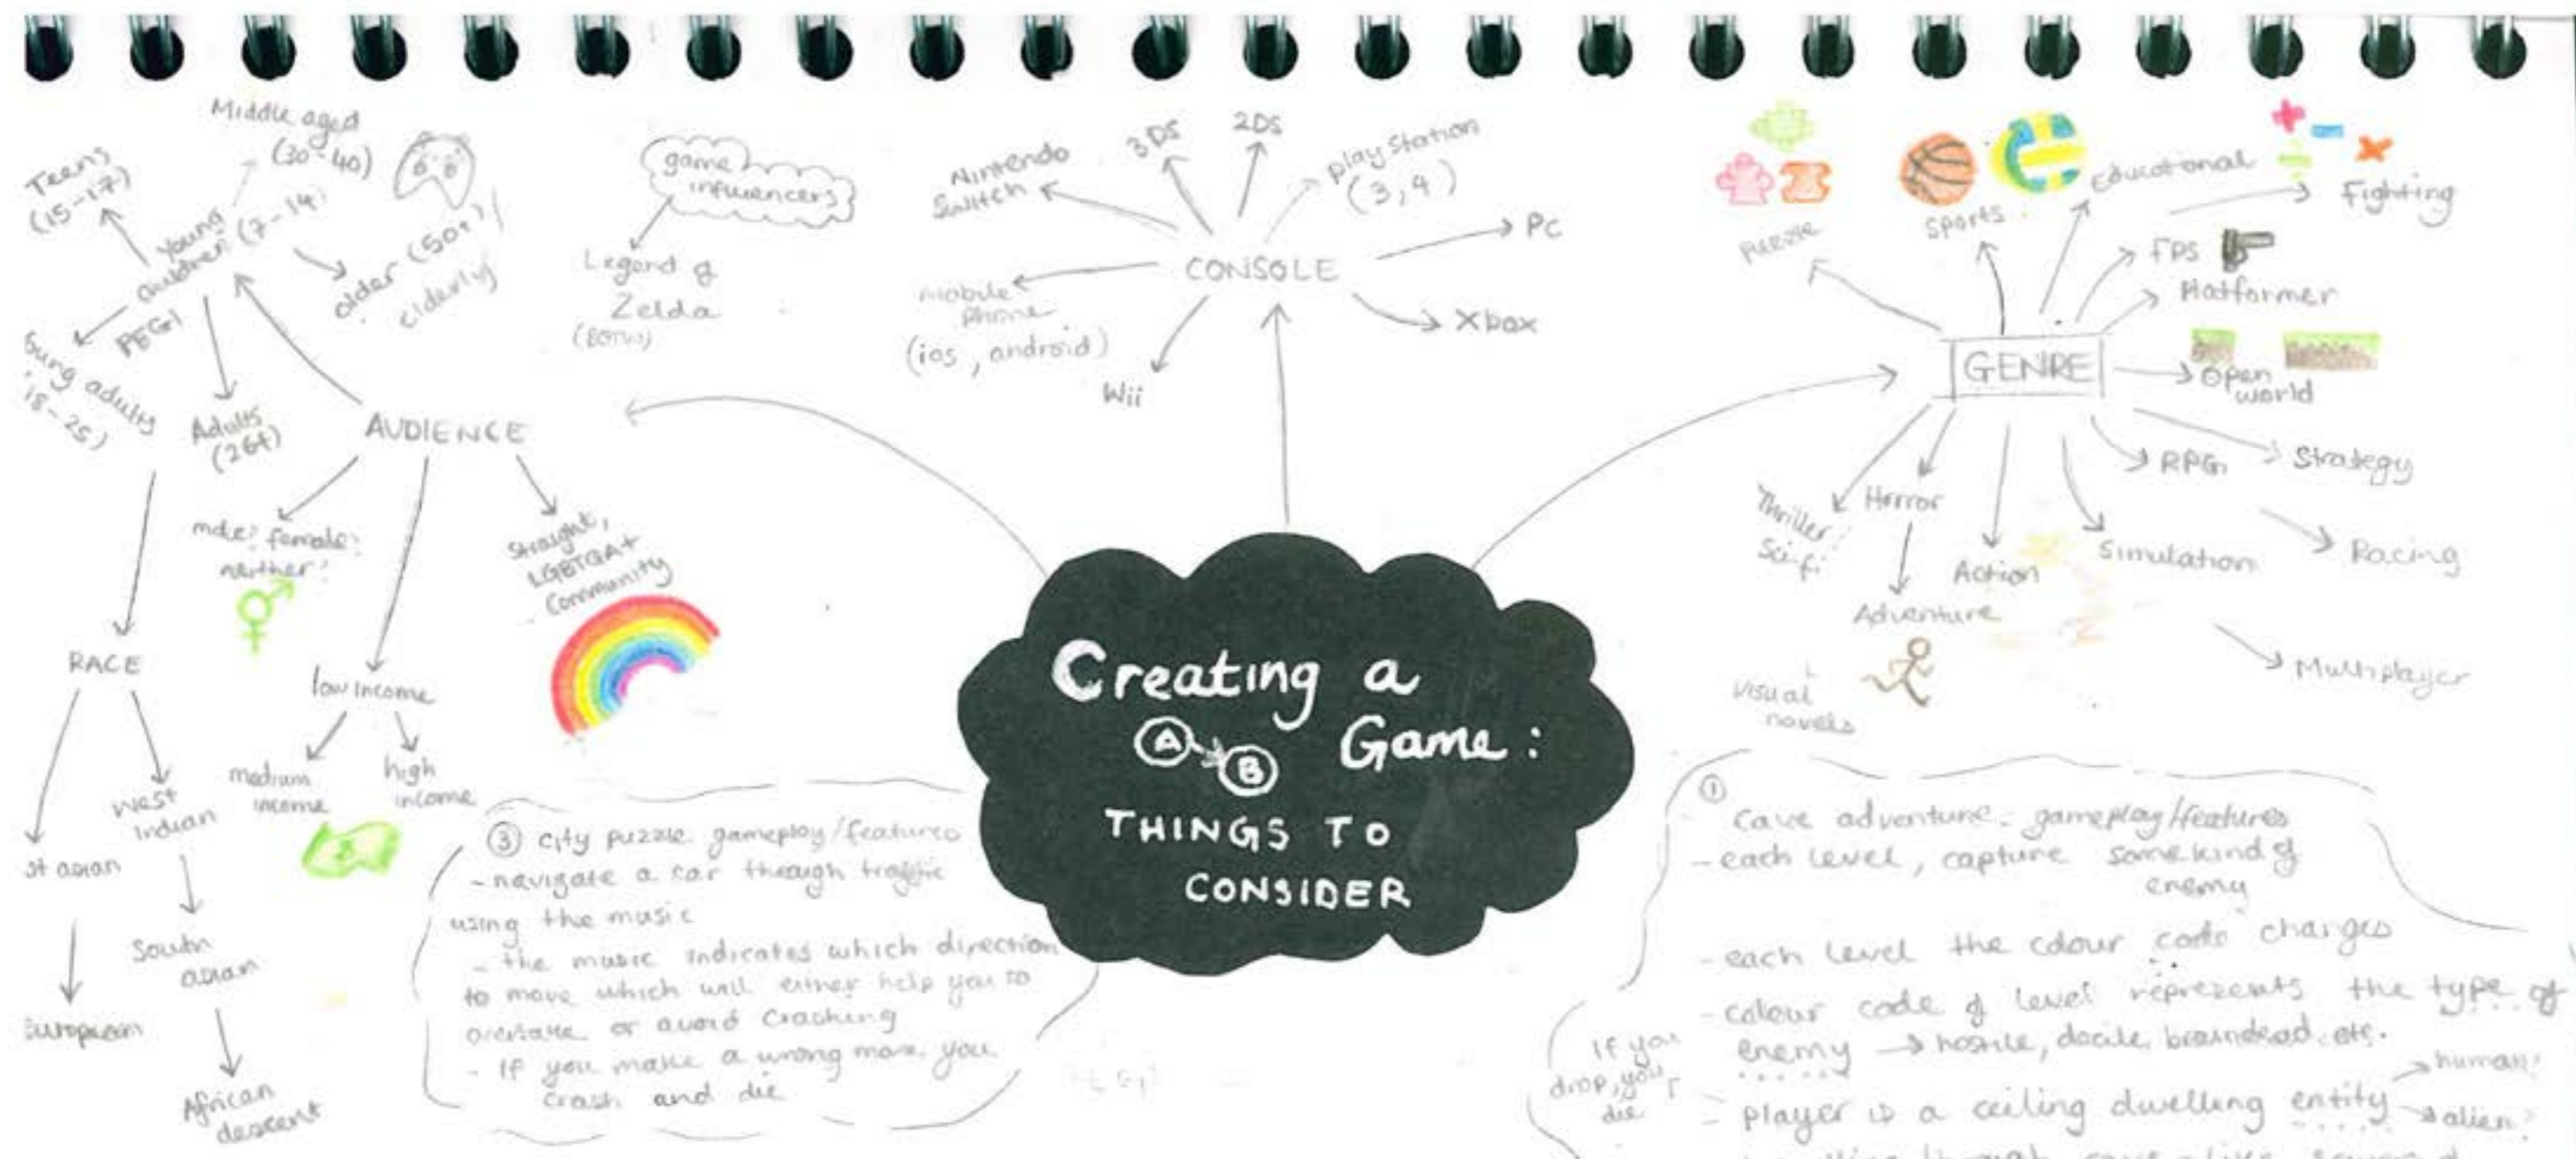 Middle aged
(30-40)
Teens
(15-17)
young
children (7-14)
PEGI
older (50+)
elderly
adults
18-25)
Adults
(26+)
AUDIENCE
male? female?
neither?
Straight,
LGBTQA+
Community
RACE
west
indian
South
asian
African
descent
st asian
European
low income
medium
income
high
income
game
influencers
Legend of
Zelda
(BOTW)
CONSOLE
Nintendo
Switch
3DS
2DS
play station
(3,4)
PC
Xbox
Wii
mobile
phone
(ios, android)
GENRE
puzzle
sports
Educational
Fighting
FPS
Platformer
Open
world
Strategy
RPG
Racing
Simulation
Multiplayer
Action
Horror
Adventure
Thriller
Sci-fi
Visual
novels
Creating a
A B Game:
THINGS TO
CONSIDER
③ city puzzle gameplay/features
- navigate a car through traffic
using the music
- the music indicates which direction
to move which will either help you to
overtake or avoid crashing
- If you make a wrong move you
crash and die
①
cave adventure - gameplay/features
- each level, capture some kind of
enemy
- each level the colour code changes
- colour code of level represents the type of
enemy → hostile, docile, braindead, etc.
- player is a ceiling dwelling entity
human?
alien?
If you
drop, you
die
through